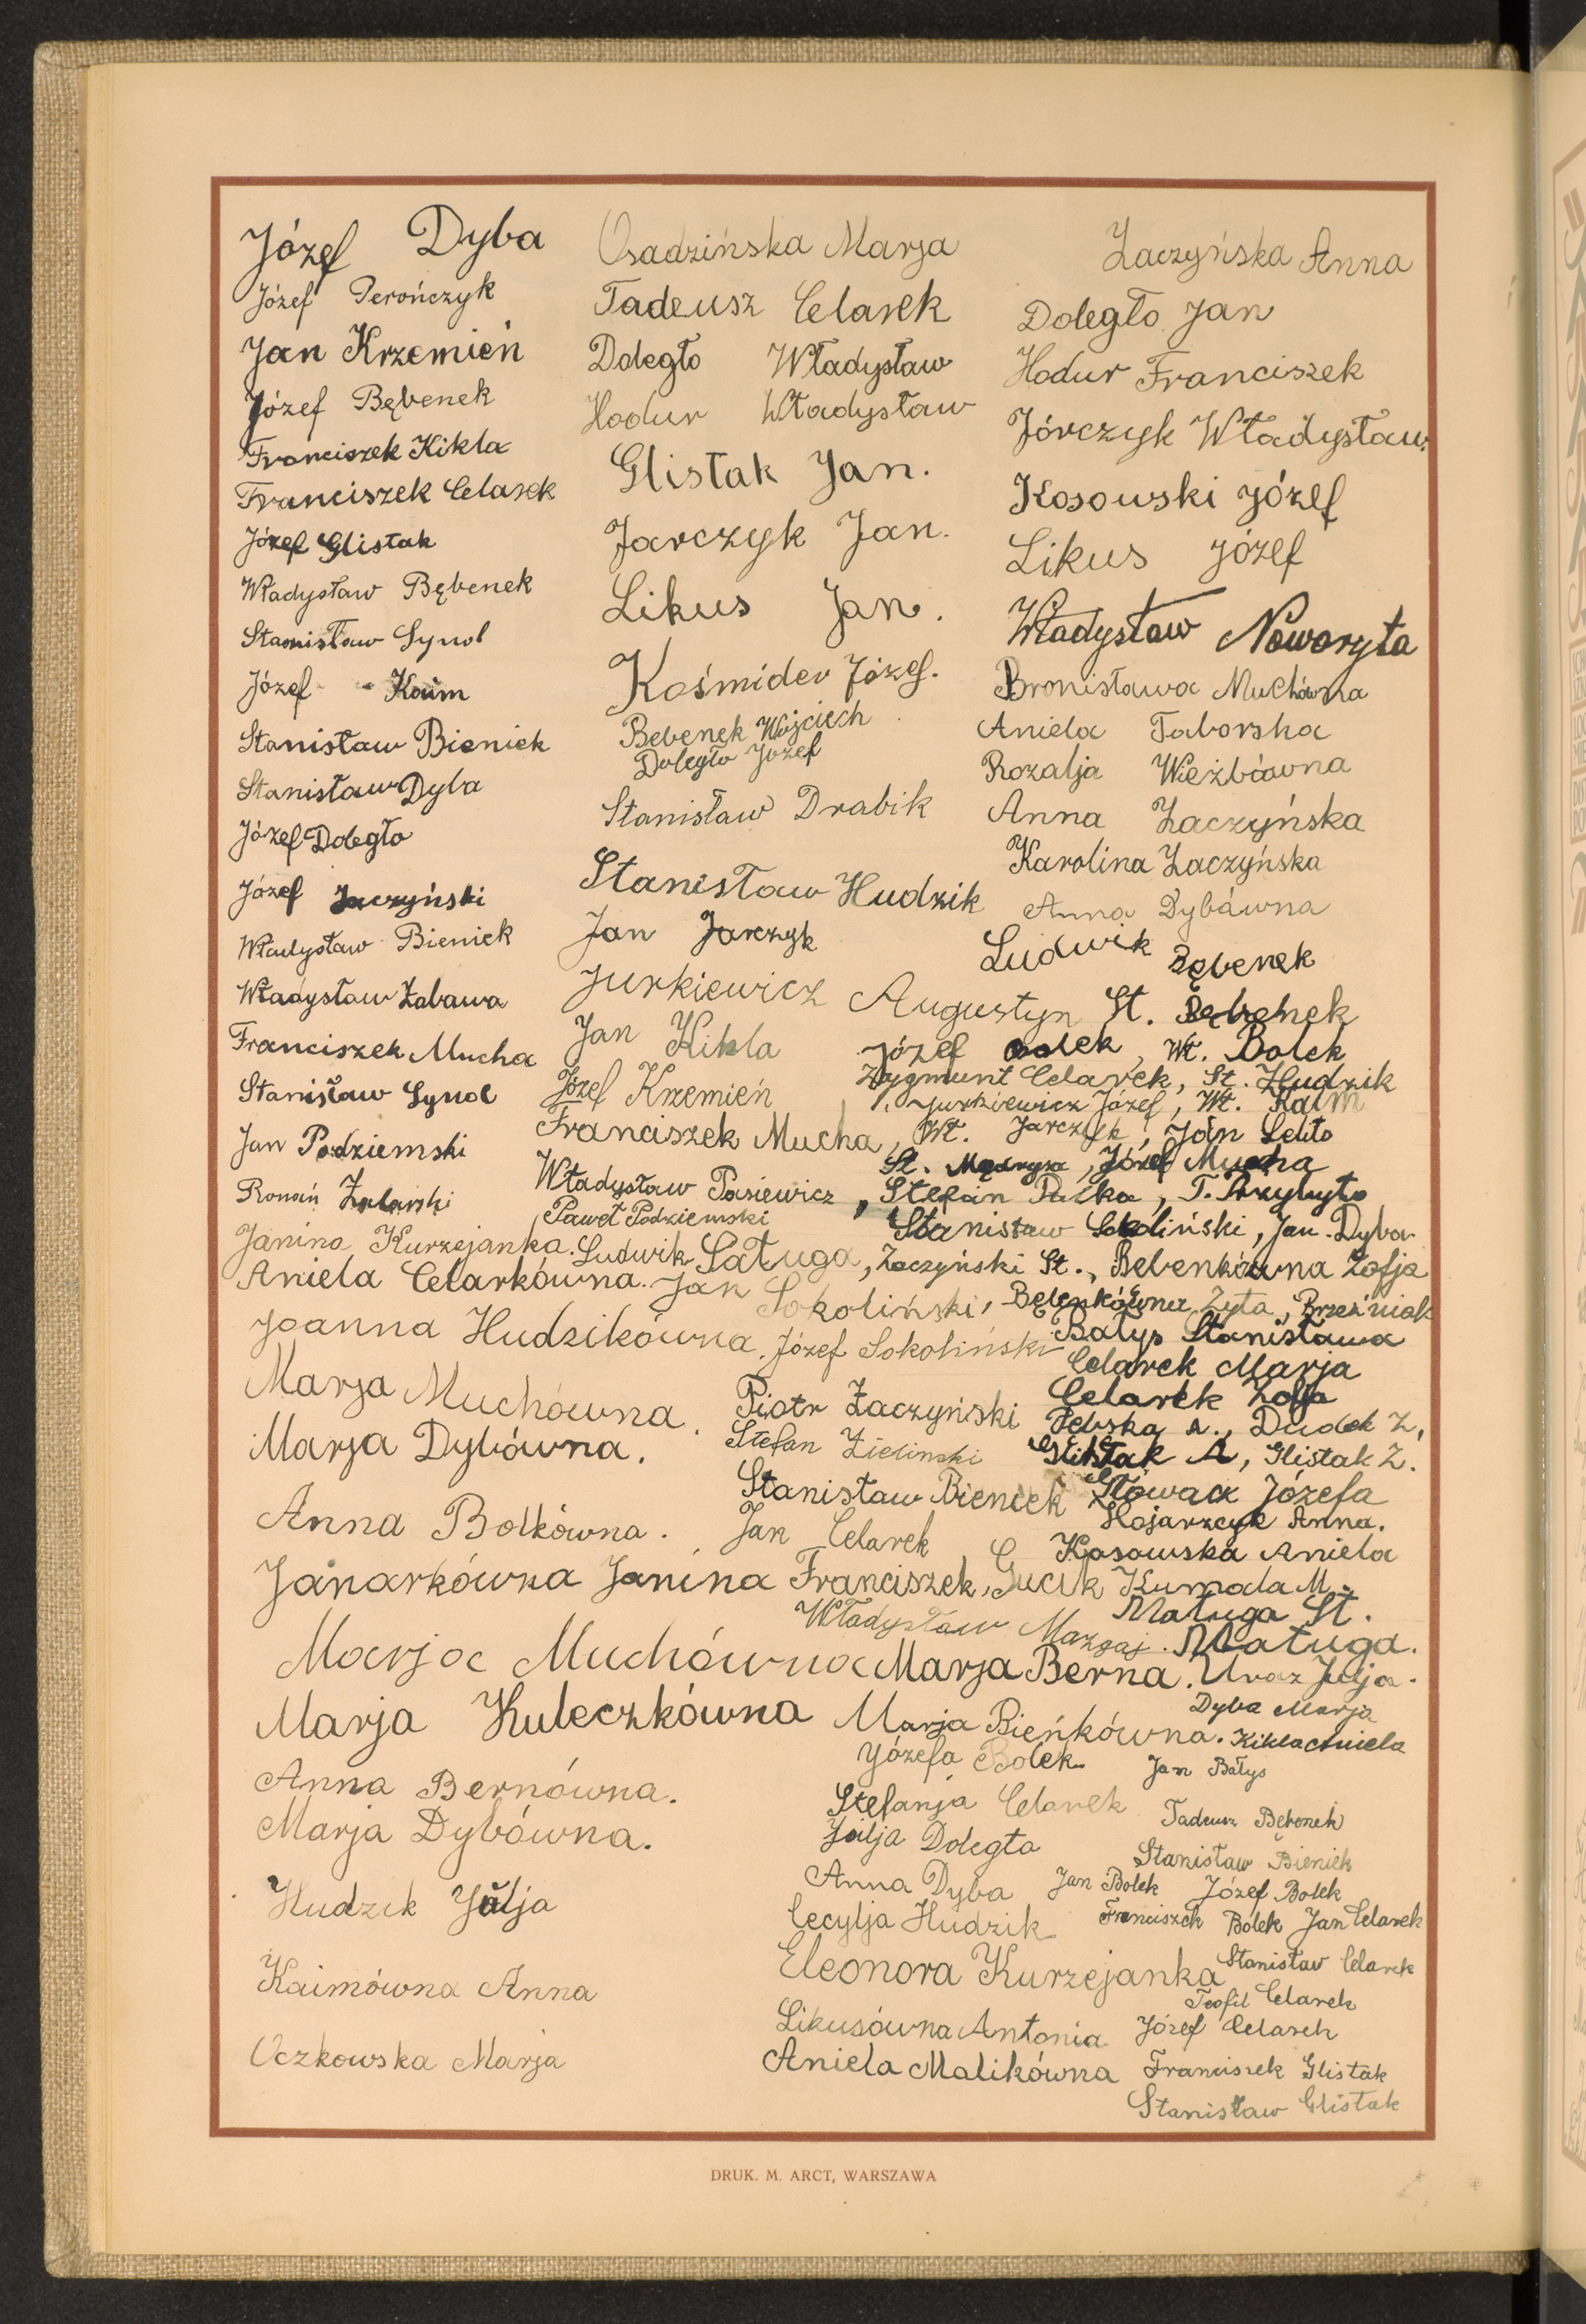 Józef Dyba
Józef Perończyk
Jan Krzemień
Józef Bębenek
Franciszek Kikla
Franciszek Celarek
Józef Glistak
Władysław Bębenek
Stanisław Synol
Józef Kaim
Stanisław Bieniek
Stanisław Dyba
Józef Doległo
Józef Żaczyński
Władysław Bieniek
Władysław Żabawa
Franciszek Mucha
Stanisław Synol
Jan Podziemski
Roman
Janina Kurzejanka.
Aniela Celarkówna.
Joanna Hudzikówna.
Marja Muchówna
Marja Dybówna.
Anna Bolkówna.
Janarkówna Janina
Marja Muchówna
Marja Kuleczkówna
Anna Bernówna.
Marja Dybówna.
Hudzik Julja
Kaimówna Anna
Oczkowska Marja
Osadzińska Marja
Tadeusz Celarek
Doległo Władysław
Hodur Władysław
Glistak Jan.
Jarczyk Jan.
Likus Jan.
Kośmider Józef.
Bębenek Wojciech
Doległo Józef
Stanisław Drabik
Stanisław Hudzik
Jan Jarczyk
Jurkiewicz Augustyn
Jan Kikla
Józef Krzemień
Franciszek Mucha,
Władysław Pasiewicz,
Paweł Podziemski
Ludwik Satuga,
Jan Sokoliński,
Józef Sokoliński
Piotr Żaczyński
Stefan Zieliński
Stanisław Bieniek
Jan Celarek
Franciszek Gucik
Władysław Mazgaj.
Marja Berna.
Marja Bieńkówna.
Józefa Bolek
Stefanja Celarek
Julja Doległa
Anna Dyba
Cecylja Hudzik
Eleonora Kurzejanka
Likusówna Antonia
Aniela Malikówna
Żaczyńska Anna
Doległo Jan
Hodur Franciszek
Jórczyk Władysław.
Kosowski Józef
Likus Józef
Władysław Noworyta
Bronisława Muchówna
Aniela Taborska
Rozalja Wieżbówna
Anna Żaczyńska
Karolina Żaczyńska
Anna Dybówna
Ludwik Bębenek
St. Bębenek
Józef Bolek, Wł. Bolek
Zygmunt Celarek, St. Hudzik
Jurkiewicz Józef, Wł. Kaim
Wł. Jarczyk, Jan Lelito
St. Józef Mucha
Stefan Pałka, T. Przybyło
Stanisław Sokoliński, Jan Dyba
Żaczyński St., Bębenkówna Zofja
Bębenkówna Zyta, Brzeźniak
Bałys Stanisława
Celarek Marja
Celarek Zofja
Dębska A., Dudek Z.,
Glistak A, Glistak Z.
Głowacz Józefa
Hojarzcyk Anna.
Kosowska Aniela
Kumala M.
Matuga St.
Matuga.
Uraz Julja.
Dyba Marja
Kikla Aniela
Jan Bałys
Tadeusz Bębenek
Stanisław Bieniek
Jan Bolek Józef Bolek
Franciszek Bolek Jan Celarek
Stanisław Celarek
Teofil Celarek
Józef Celarek
Franciszek Glistak
Stanisław Glistak
DRUK. M. ARCT, WARSZAWA